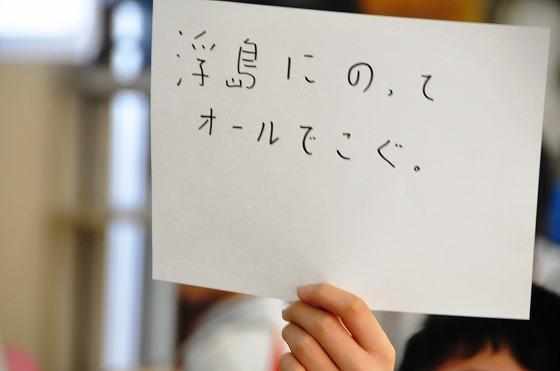 浮島にのって
オールでこぐ。